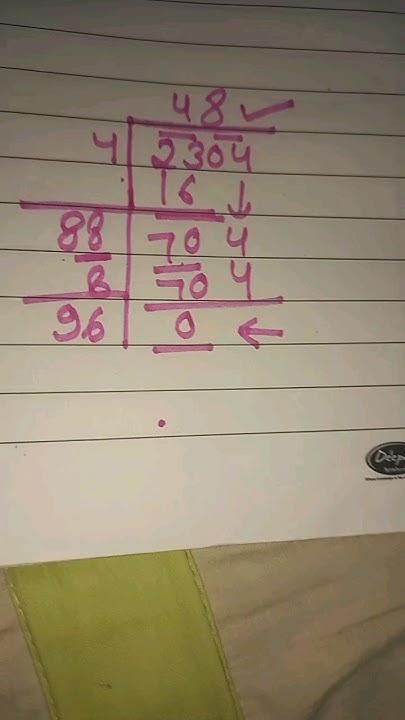 48 ✓
4 2304
16 ↓
88 704
8 704
96 0 ←
Deep